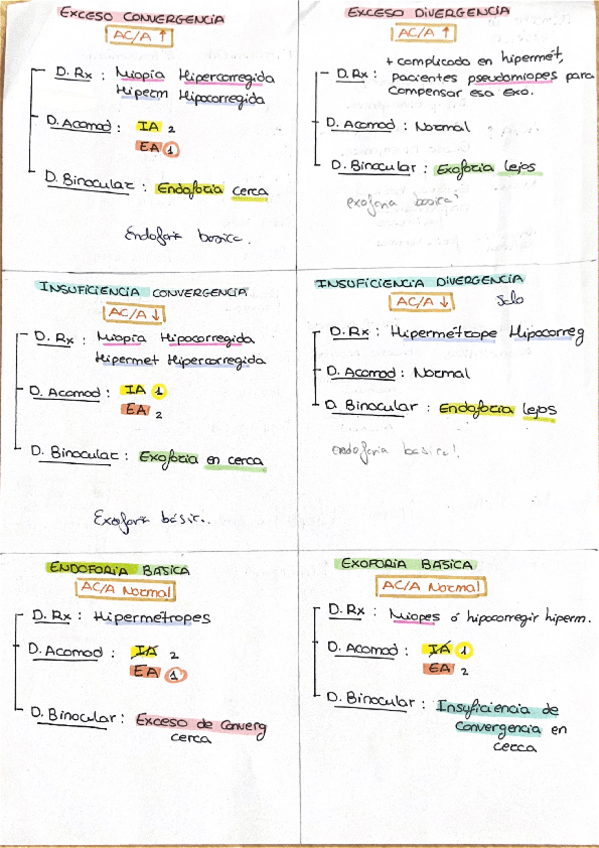 EXCESO CONVERGENCIA
AC/A ↑
D. Rx : Miopía Hipercorregida
Hiperm Hipocorregida
D. Acomod : IA 2
EA 1
D. Binocular : Endoforia cerca
Endoforia basica.
EXCESO DIVERGENCIA
AC/A ↑
+ complicado en hipermét,
D. Rx : pacientes pseudomiopes para
compensar esa exo.
D. Acomod : Normal
D. Binocular : Exoforia lejos
exoforia basica!
INSUFICIENCIA CONVERGENCIA
AC/A ↓
D. Rx : Miopía Hipocorregida
Hipermet Hipercorregida
D. Acomod : IA 1
EA 2
D. Binocular : Exoforia en cerca
Exoforia básica.
INSUFICIENCIA DIVERGENCIA
AC/A ↓ solo
D. Rx : Hipermétrope Hipocorreg
D. Acomod : Normal
D. Binocular : Endoforia lejos
endoforia basica!
ENDOFORIA BASICA
AC/A Normal
D. Rx : Hipermétropes
D. Acomod : IA 2
EA 1
D. Binocular : Exceso de Converg
cerca
EXOFORIA BASICA
AC/A Normal
D. Rx : Miopes ó hipocorregir hiperm.
D. Acomod : IA 1
EA 2
D. Binocular : Insuficiencia de
Convergencia en
cerca